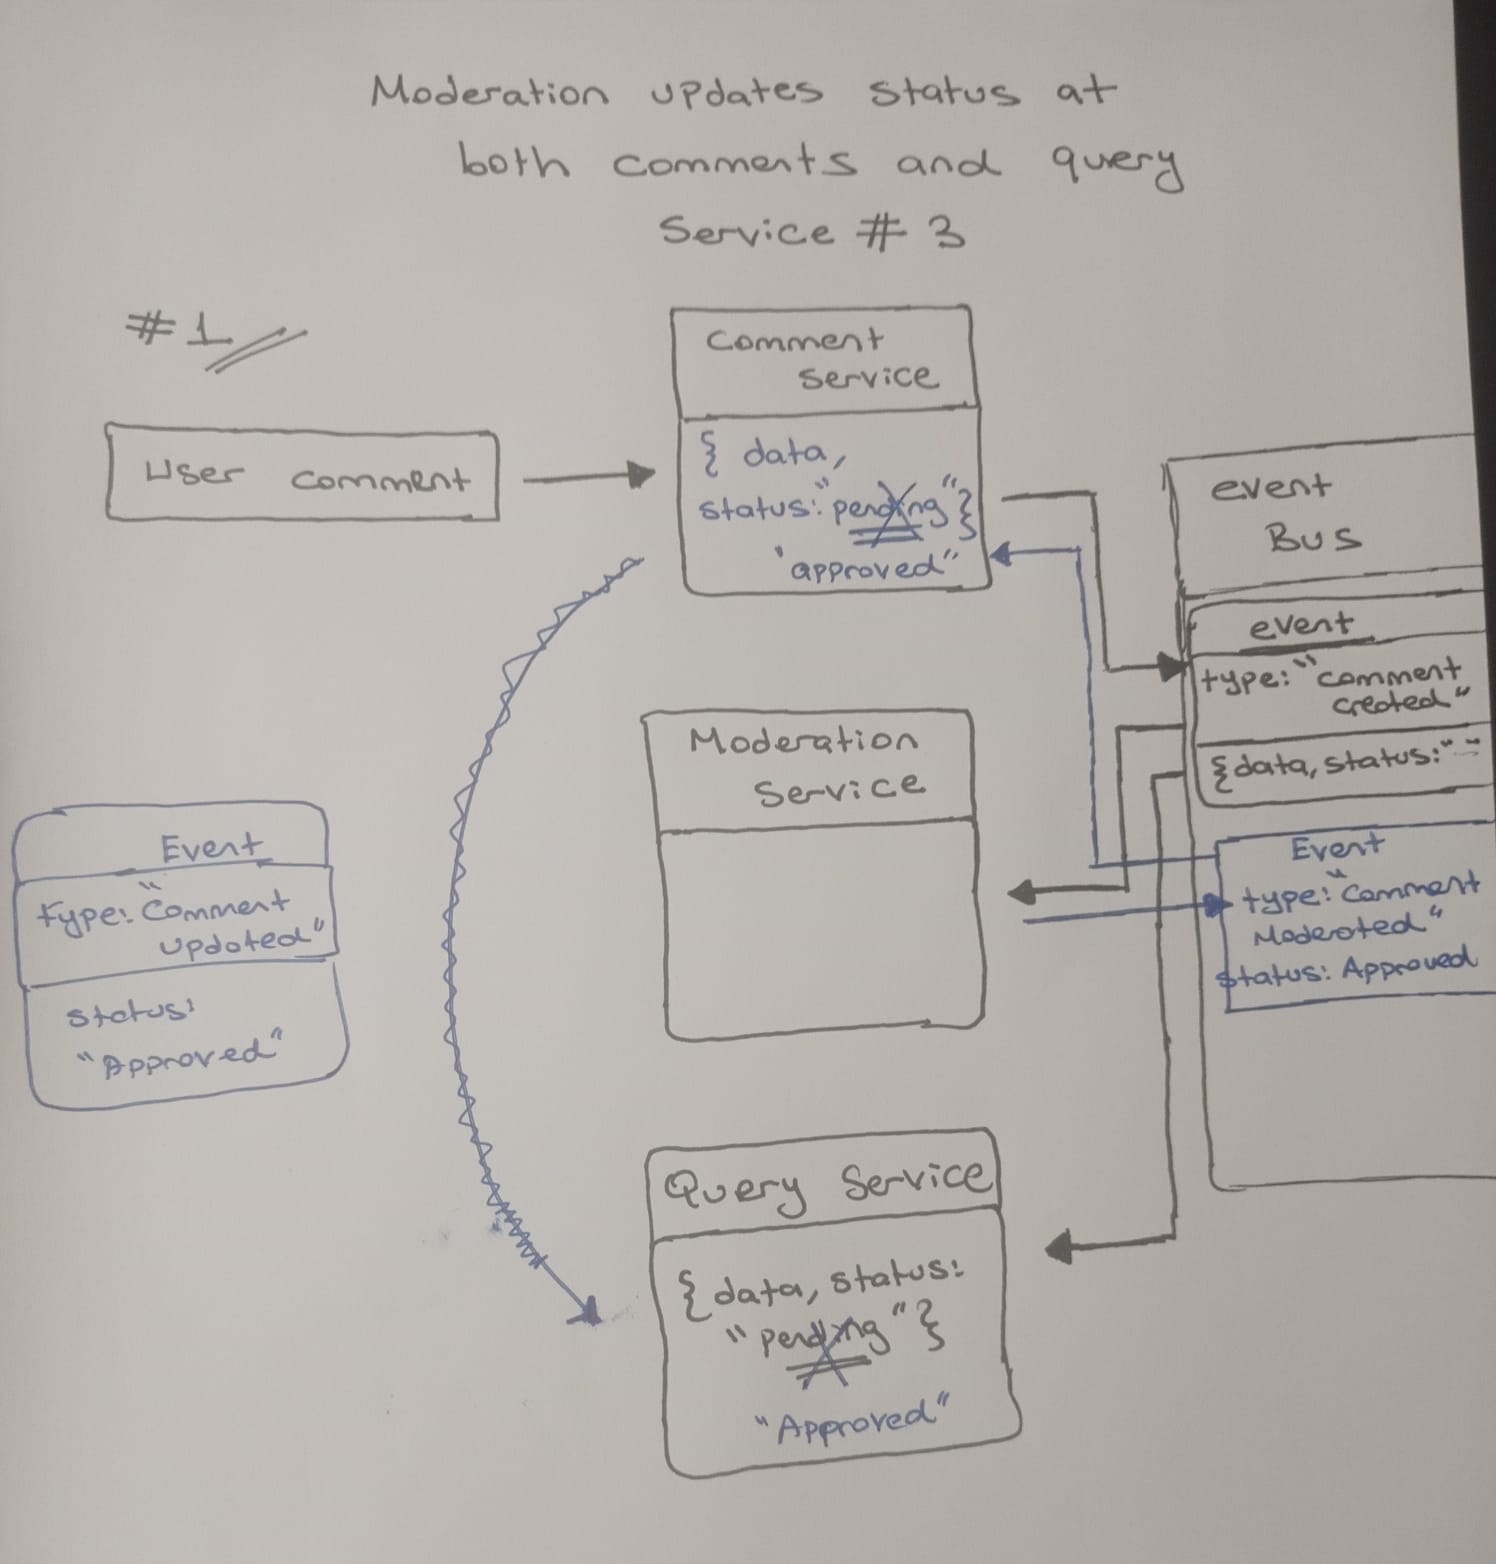 Moderation updates status at
both comments and query
Service # 3
#1
User comment
Comment
Service
{ data,
status: "pending"}
"approved"
event
Bus
event
type: "comment
created"
{data, status: " "
Event
type: "Comment
Moderated"
status: Approved
Moderation
Service
Event
type: "Comment
Updated"
status:
"Approved"
Query Service
{ data, status:
"pending"}
"Approved"